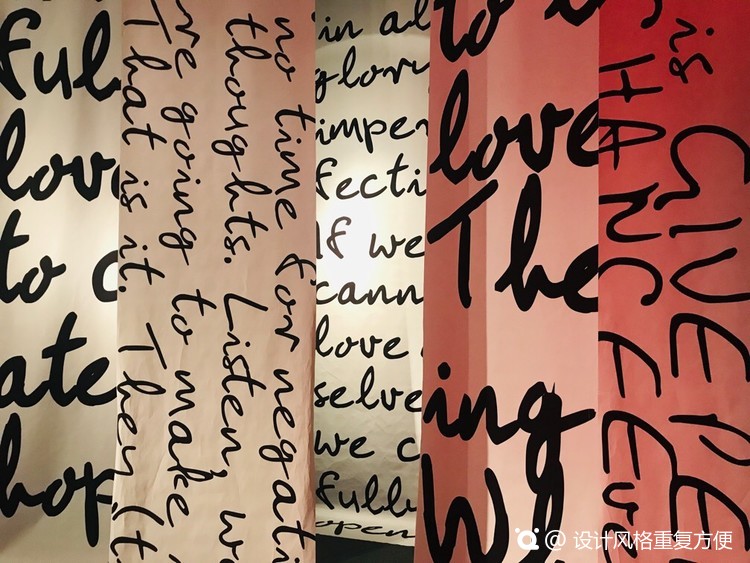 ful
love
to
ate
hop
no time for negati
thoughts. Listen, w
re going to make
That is it. Then (t
in al
glory
imper
fecti
If we
cann
love
selve
we c
fully
open
to
love
The
ing
We
is
GIVE PE
CHANCE
Eve
@ 设计风格重复方便